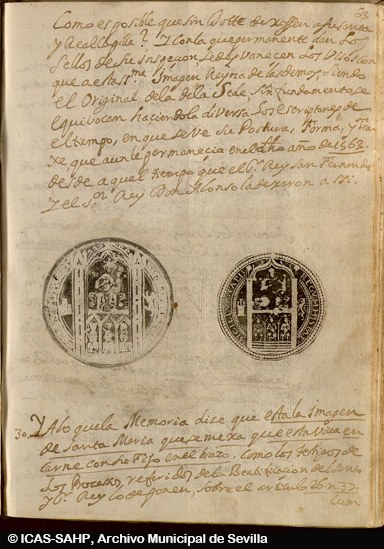 63.
Como es posible que sin Dotte dexassen a su
y Real Capilla? Y con la que permanente dan Los
Sellos de su Inspeccion, se desvanecen Los
que a esta s.ma Imagen Reyna de las demas, siendo
el Original, de la de la Sede, sin fundamento se
equivocan haciendola diversa, los escriptores de
el tiempo, en que se ve su Postura, forma, y
xe, que aun le permanecia en el dho año de 1563.
desde aquel tiempo que el S.r Rey san Fernando
Y el S.or Rey Don Alonso la dexaron a
30. Y A lo que la Memoria dise que esta la imagen
de Santa Maria que semexa que esta viva en
carne con su Fijo en el brazo. Como los testigos de
Los Processos, referidos de la Beatificacion del Santo
y S.r Rey lo deponen, sobre el articulo 26 n. 37.
© ICAS-SAHP, Archivo Municipal de Sevilla